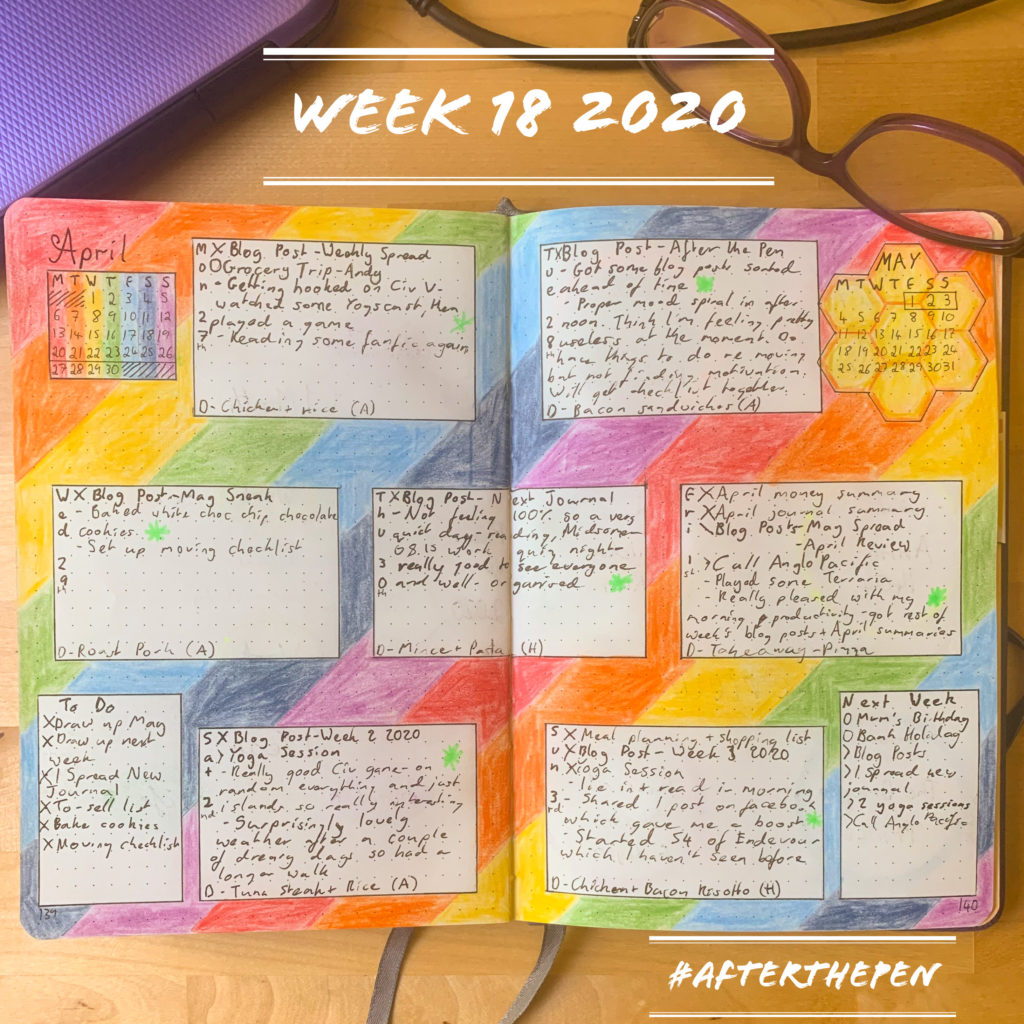 WEEK 18 2020
April
M T W T F S S
1 2 3 4 5
6 7 8 9 10 11 12
13 14 15 16 17 18 19
20 21 22 23 24 25 26
27 28 29 30
Mon 27th
X Blog Post - Weekly Spread
O Grocery Trip - Andy
- Getting hooked on Civ V -
watched some Yogscast, then
played a game
- Reading some fanfic again
D - Chicken + rice (A)
Tu e 28th
X Blog Post - After the Pen
- Got some blog posts sorted
ahead of time
- Proper mood spiral in after
noon. Think I'm feeling pretty
useless at the moment. Do
have things to do re moving
but not finding motivation.
Will get checklist together.
D - Bacon sandwiches (A)
MAY
M T W T F S S
1 2 3
4 5 6 7 8 9 10
11 12 13 14 15 16 17
18 19 20 21 22 23 24
25 26 27 28 29 30 31
Wed 29th
X Blog Post - May Sneak
- Baked white choc chip chocolate
cookies.
- Set up moving checklist
D - Roast Pork (A)
Thu 30th
X Blog Post - Next Journal
- Not feeling 100% so a very
quiet day - reading, Midsomer
G8.15 work quiz night -
really good to see everyone
and well-organised
D - Mince + Pasta (H)
Fri 1st
X April money summary
X April journal summary
\ Blog Posts - May Spread
- April Review
> Call Anglo Pacific
- Played some Terraria
- Really pleased with my
morning productivity - got rest of
week's blog posts + April summaries
D - Takeaway - Pizza
To Do
X Draw up May
X Draw up next
week
X 1 Spread New
Journal
X To-sell list
X Bake cookies
X Moving checklist
Sat 2nd
X Blog Post - Week 2 2020
> Yoga Session
- Really good Civ game - on
random everything and just
islands so really interesting
- Surprisingly lovely
weather after a couple
of dreary days so had a
longer walk
D - Tuna Steak + Rice (A)
Sun 3rd
X Meal planning + shopping list
X Blog Post - Week 3 2020
X Yoga Session
- lie in + read in morning
- Shared 1 post on facebook
which gave me a boost
- Started S4 of Endeavour
which I haven't seen before
D - Chicken + Bacon Risotto (H)
Next Week
O Mum's Birthday
O Bank Holiday
> Blog Posts
> 1 Spread new
journal
> 2 yoga sessions
> Call Anglo Pacific
139
140
#AFTERTHEPEN